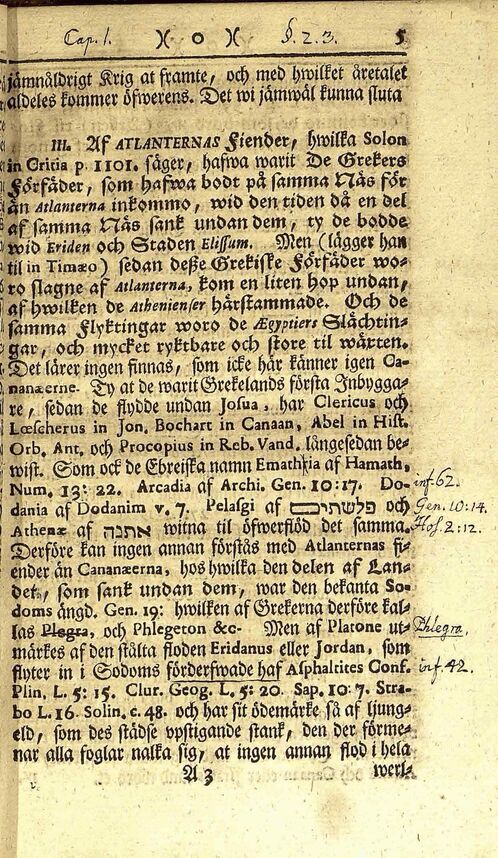 Cap. 1. )( o )( §. 2. 3. 5
jämnåldrigt Krig at framte, och med hwilket åretalet
aldeles kommer öfwerens. Det wi jämwäl kunna sluta
III. Af ATLANTERNAS Fiender, hwilka Solon
in Critia p. 1101. säger, hafwa warit De Grekers
Förfäder, som hafwa bodt på samma Näs för
än Atlanterna inkommo, wid den tiden då en del
af samma Näs sank undan dem, ty de bodde
wid Eriden och Staden Elissum. Men (lägger han
til in Timæo) sedan desse Grekiske Förfäder wo-
ro slagne af Atlanterna, kom en liten hop undan,
af hwilken de Athenienser härstammade. Och de
samma Flyktingar woro de Ægyptiers Slächtin-
gar, och mycket ryktbare och store til wäxten.
Det lärer ingen finnas, som icke här känner igen Ca-
nanæerne. Ty at de warit Grekelands första Inbygga-
re, sedan de flydde undan Josua, har Clericus och
Lœscherus in Jon. Bochart in Canaan, Abel in Hist.
Orb. Ant. och Procopius in Reb. Vand. långesedan be-
wist. Som ock de Ebreiska namn Emathia af Hamath,
Num. 13: 22. Arcadia af Archi. Gen. 10: 17. Do- inf. 62.
dania af Dodanim v. 7. Pelasgi af פלשתים och Gen. 10: 14.
Athenæ af אתנה witna til öfwerflöd det samma. Hos. 2: 12.
Derföre kan ingen annan förstås med Atlanternas fi-
ender än Cananæerna, hos hwilka den delen af Lan-
det, som sank undan dem, war den bekanta So-
doms ängd. Gen. 19: hwilken af Grekerna derföre kal-
las Plegra, och Phlegeton &c. Men af Platone ut- Phlegra,
märkes af den stälta floden Eridanus eller Jordan, som
flyter in i Sodoms förderfwade haf Asphaltites Conf. inf. 42.
Plin. L. 5: 15. Clur. Geog. L. 5: 20. Sap. 10: 7. Stra-
bo L. 16. Solin. c. 48. och har sit ödemärke så af ljung-
eld, som des städse upstigande stank, den der förme-
nar alla foglar nalka sig, at ingen annan flod i hela
A 3 werl-